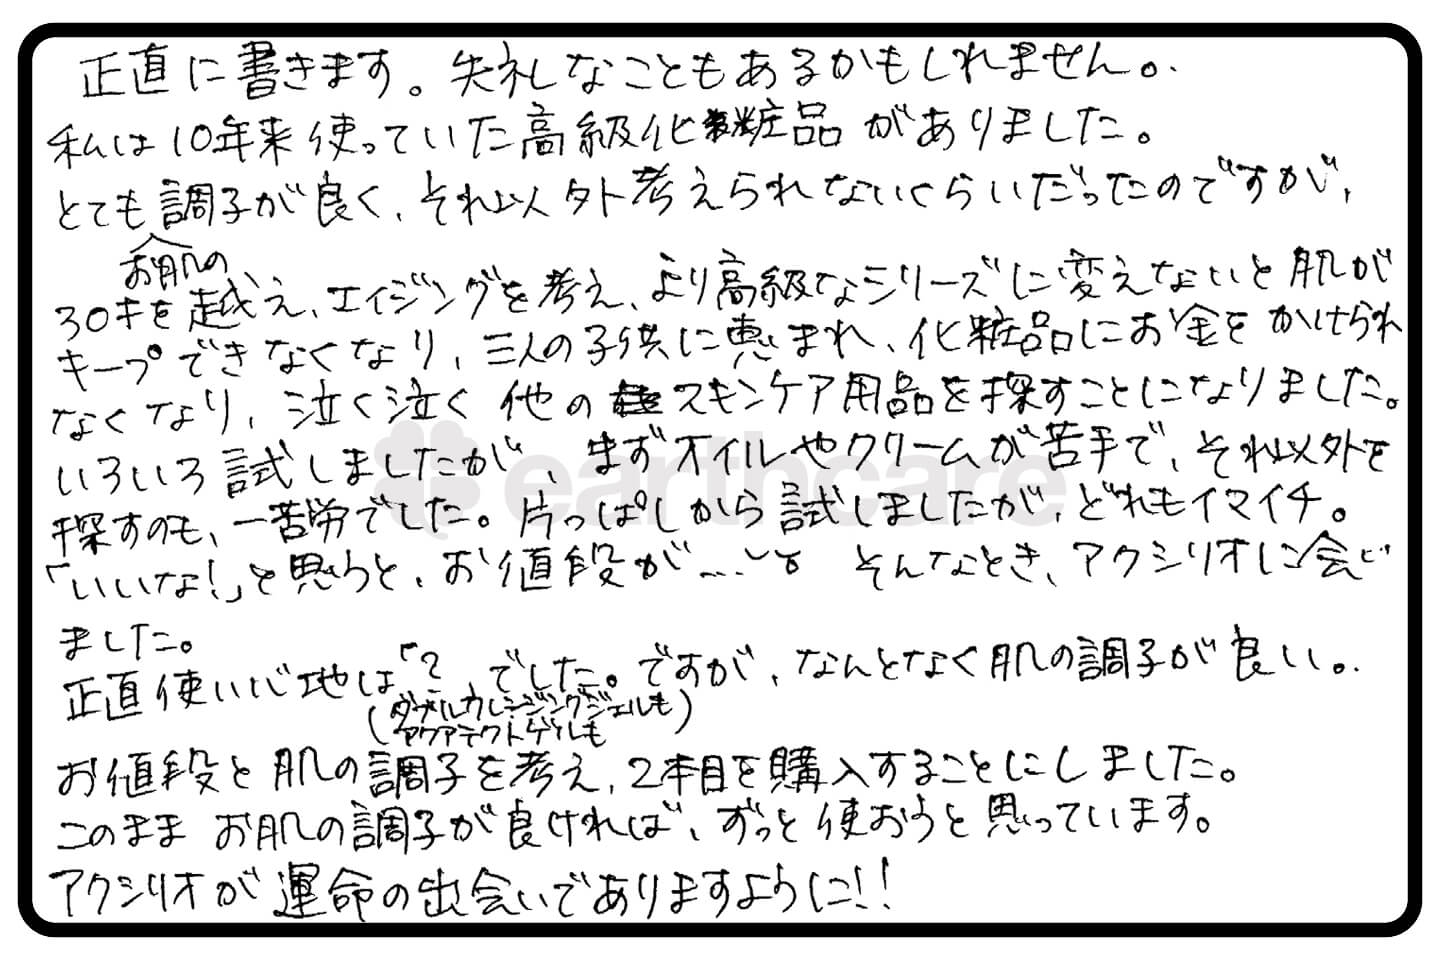 正直に書きます。失礼なこともあるかもしれません。
私は10年来使っていた高級化粧品がありました。
とても調子が良く、それ以外考えられないくらいだったのですが、
お肌の
30才を越え、エイジングを考え、より高級なシリーズに変えないと肌が
キープできなくなり、三人の子供に恵まれ、化粧品にお金をかけられ
なくなり、泣く泣く他のスキンケア用品を探すことになりました。
いろいろ試しましたが、まずオイルやクリームが苦手で、それ以外を
探すのも、一苦労でした。片っぱしから試しましたが、どれもイマイチ。
「いいな!」と思うと、お値段が... そんなとき、アクシリオに会い
ました。
正直使い心地は「?」でした。ですが、なんとなく肌の調子が良い。
(ダブルクレンジングジェルも
アクアテクトゲルも)
お値段と肌の調子を考え、2本目を購入することにしました。
このままお肌の調子が良ければ、ずっと使おうと思っています。
アクシリオが運命の出会いでありますように!!
earthcare